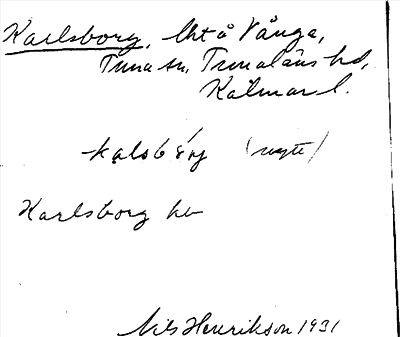 Karlsborg, Urå Vånga,
Tuna sn, Tunaläns hd,
Kalmar l.
kalsbérj (nytt)
Karlsborg hv
Nils Henrikson 1931